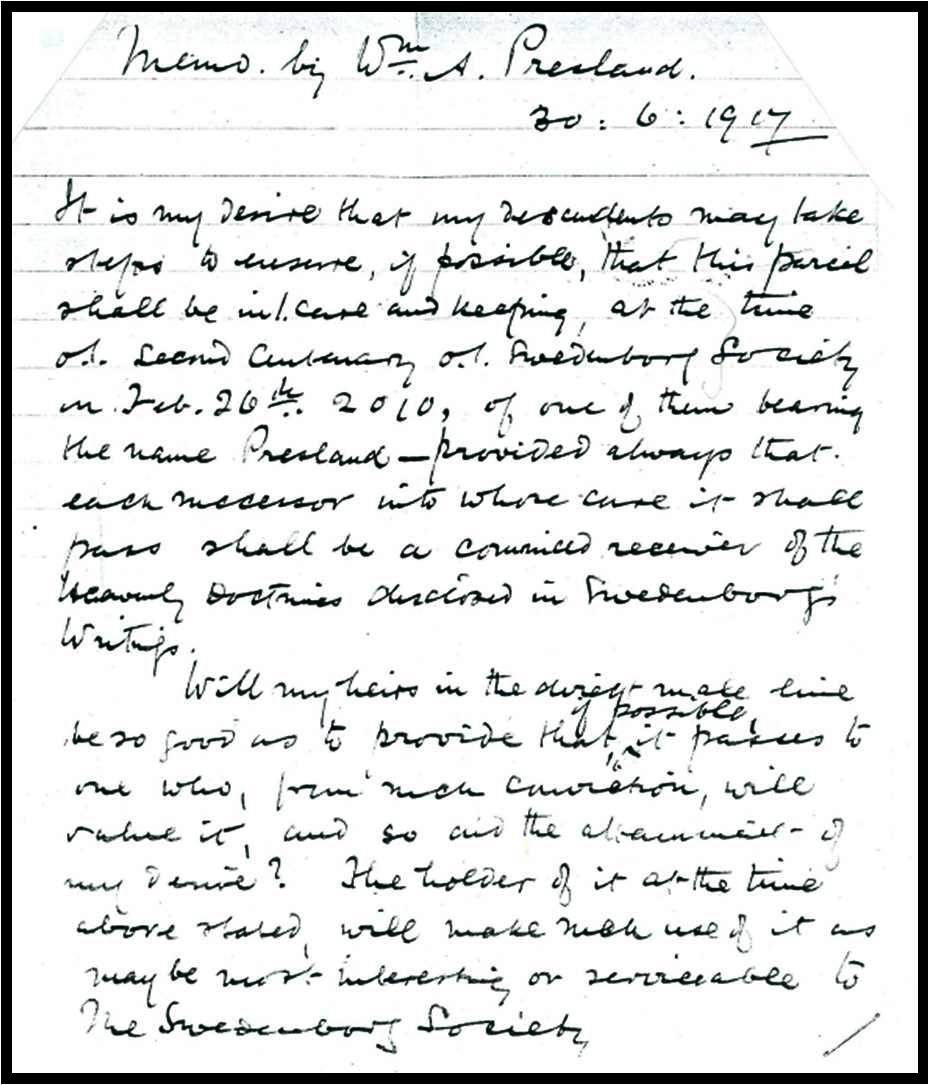 Memo. by Wm. A. Presland.
30 : 6 : 1917
It is my desire that my descendents may take
steps to ensure, if possible, that this parcel
shall be in /. care and keeping, at the time
o./. Second Centenary o./. Swedenborg Society
in Feb. 26th. 2010, of one of them bearing
the name Presland — provided always that
each successor into whose care it shall
pass shall be a convinced receiver of the
Heavenly Doctrines disclosed in Swedenborg's
Writings.
Will my heirs in the direct male line
if possible,
be so good as to provide that, it passes to
one who, from such conviction, will
value it, and so aid the attainment of
my desire? The holder of it at the time
above stated, will make such use of it as
may be most interesting or serviceable to
The Swedenborg Society